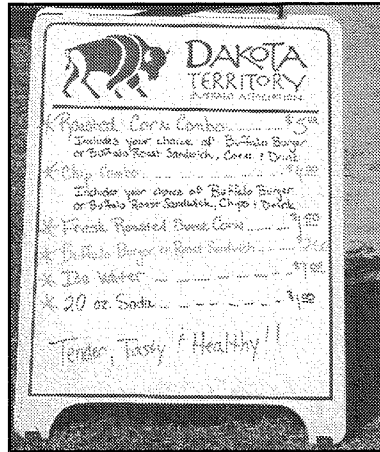 DAKOTA
TERRITORY
BUFFALO ASSOCIATION
Roasted Corn Combo $5.00
Includes your choice of Buffalo Burger
or Buffalo Roast Sandwich, Corn & Drink
Chip Combo $4.00
Includes your choice of Buffalo Burger
or Buffalo Roast Sandwich, Chips & Drink
Fresh Roasted Sweet Corn $1.00
Buffalo Burger or Roast Sandwich
Ice Water $1.00
20 oz. Soda $1.00
Tender, Tasty & Healthy!!